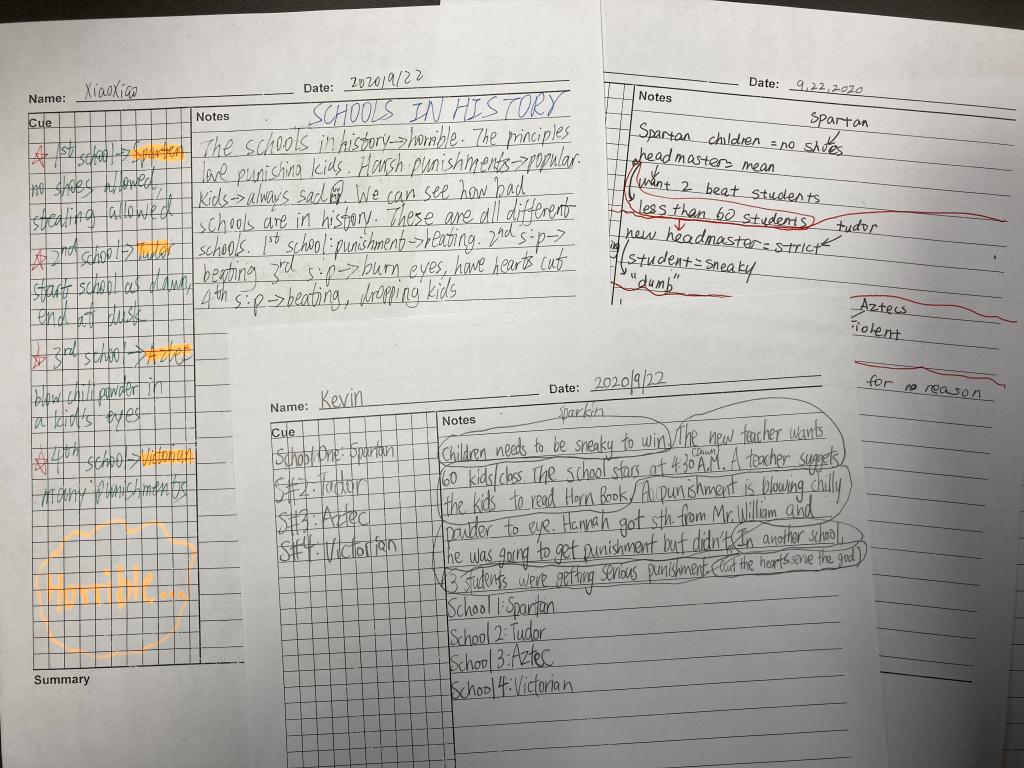 Name: XiaoXiao Date: 2020/9/22
Cue
☆ 1st school→Spartan
no shoes allowed,
stealing allowed
☆ 2nd school→Tudor
start school as dawn,
end at dusk
☆ 3rd school→Aztec
blow chili powder in
a kid's eyes
☆ 4th school→Victorian
many punishments
Horrible...
Summary
Notes
SCHOOLS IN HISTORY
The schools in history→horrible. The principles
love punishing kids. Harsh punishments→popular.
kids→always sad. We can see how bad
schools are in history. These are all different
schools. 1st school: punishment→beating. 2nd s:p→
beating 3rd s:p→burn eyes, have hearts cut
4th s:p→beating, dropping kids
Date: 9,22,2020
Notes
Spartan
Spartan children = no shoes
headmaster= mean
want 2 beat students
less than 60 students
tudor
new headmaster = strict
student = sneaky
"dumb"
Aztecs
violent
for no reason
Name: Kevin Date: 2020/9/22
Cue
School One: Spartan
S#2: Tudor
S#3: Aztec
S#4: Victorian
Notes
Sparkin
Children needs to be sneaky to win. The new teacher wants
60 kids/class The school stars at 4:30 A.M. A teacher suggets
(Dawn)
the kids to read Horn Book. A punishment is blowing chilly
pawder to eye. Hannah got sth. from Mr. William and
he was going to get punishment but didn't. In another school,
3 students were getting serious punishment (cut the hearts serve the god)
School 1: Spartan
School 2: Tudor
School 3: Aztec
School 4: Victorian